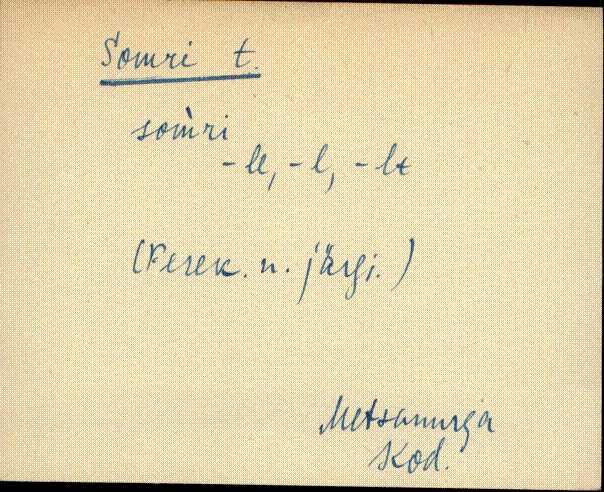 Somri t.
som̀ri
-le, -l, -lt
(Perek. n. järgi.)
Metsanurga
Kod.